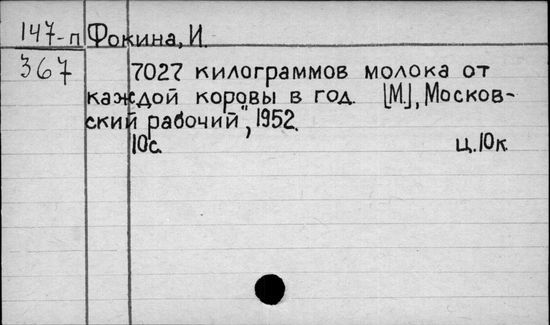 147-п Фокина, И.
367 7027 килограммов молока от
каждой коровы в год. [М.], „Москов-
ский рабочий", 1952.
10с. ц. 10к.